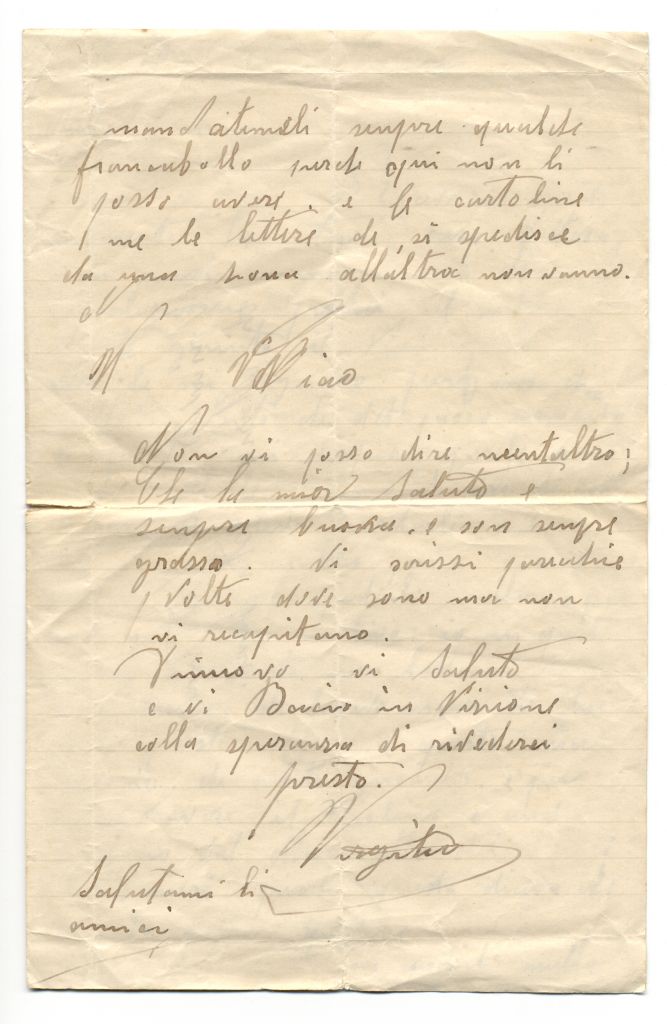 mandatemeli sempre qualche
francabollo perche qui non li
posso avere. e le cartoline
me le lettere che si spedisce
da una zona all altra non vanno.
Non vi posso dire nientaltro;
Che la mia Saluto e
sempre buona. e son sempre
grasso. Vi scrissi parechie
volte dove sono ma non
vi recapitano.
Vinuovo vi Saluto
e vi Bacio in Visione
colla speranza di rivederci
presto.
Virgilio
Salutami li
amici